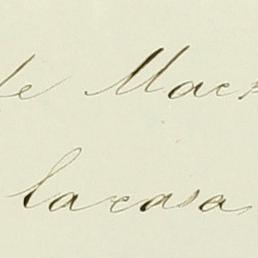 de Mac
lacasa